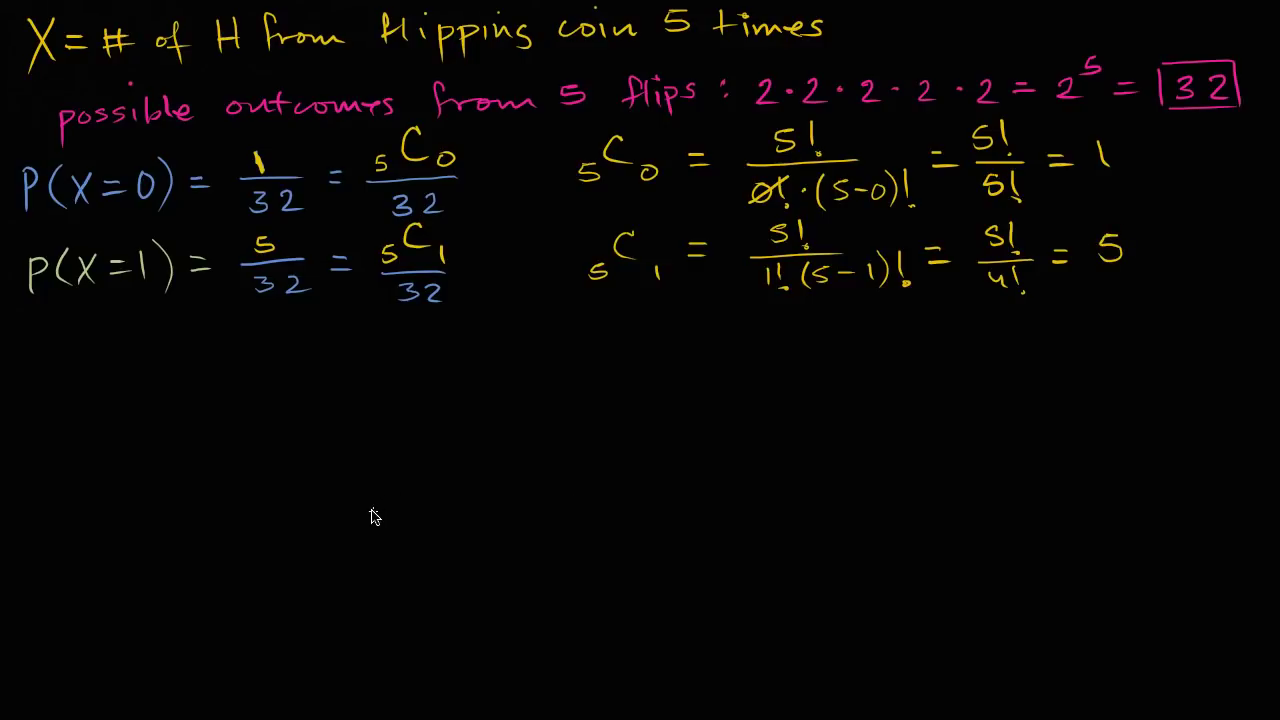 X = # of H from flipping coin 5 times
possible outcomes from 5 flips : 2 · 2 · 2 · 2 · 2 = 2^5 = 32
P(X=0) = 1/32 = ₅C₀/32    ₅C₀ = 5!/(0! · (5-0)!) = 5!/5! = 1
P(X=1) = 5/32 = ₅C₁/32    ₅C₁ = 5!/(1! (5-1)!) = 5!/4! = 5